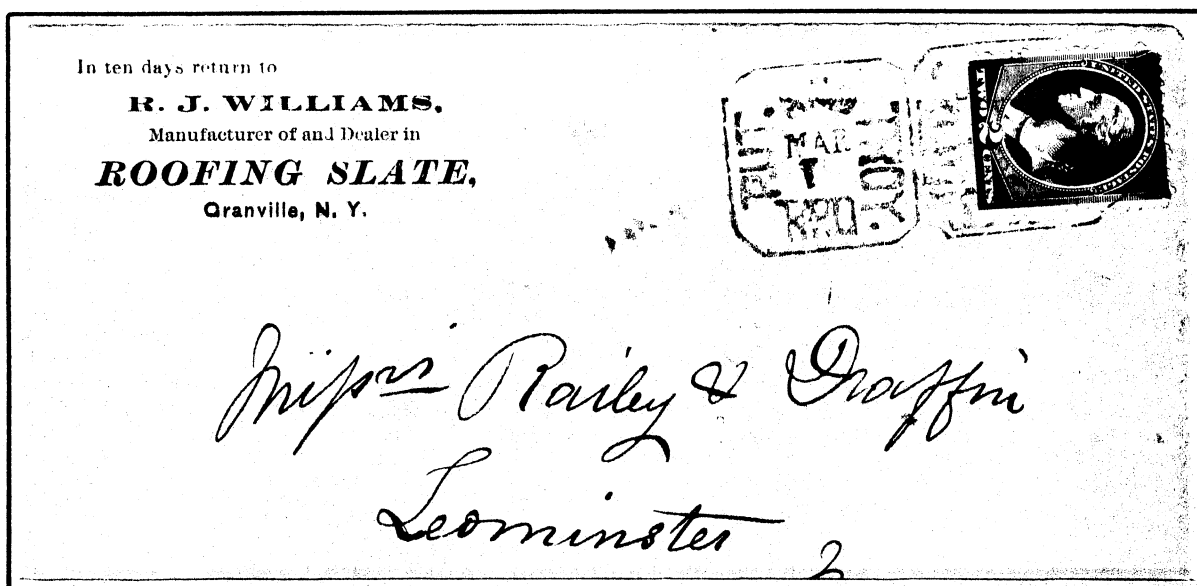 In ten days return to
R. J. WILLIAMS,
Manufacturer of and Dealer in
ROOFING SLATE,
Granville, N. Y.
MAR
1
R.P.O.
UNITED STATES POSTAGE
TWO 2 CENTS
Railey & Graffin
Leominster